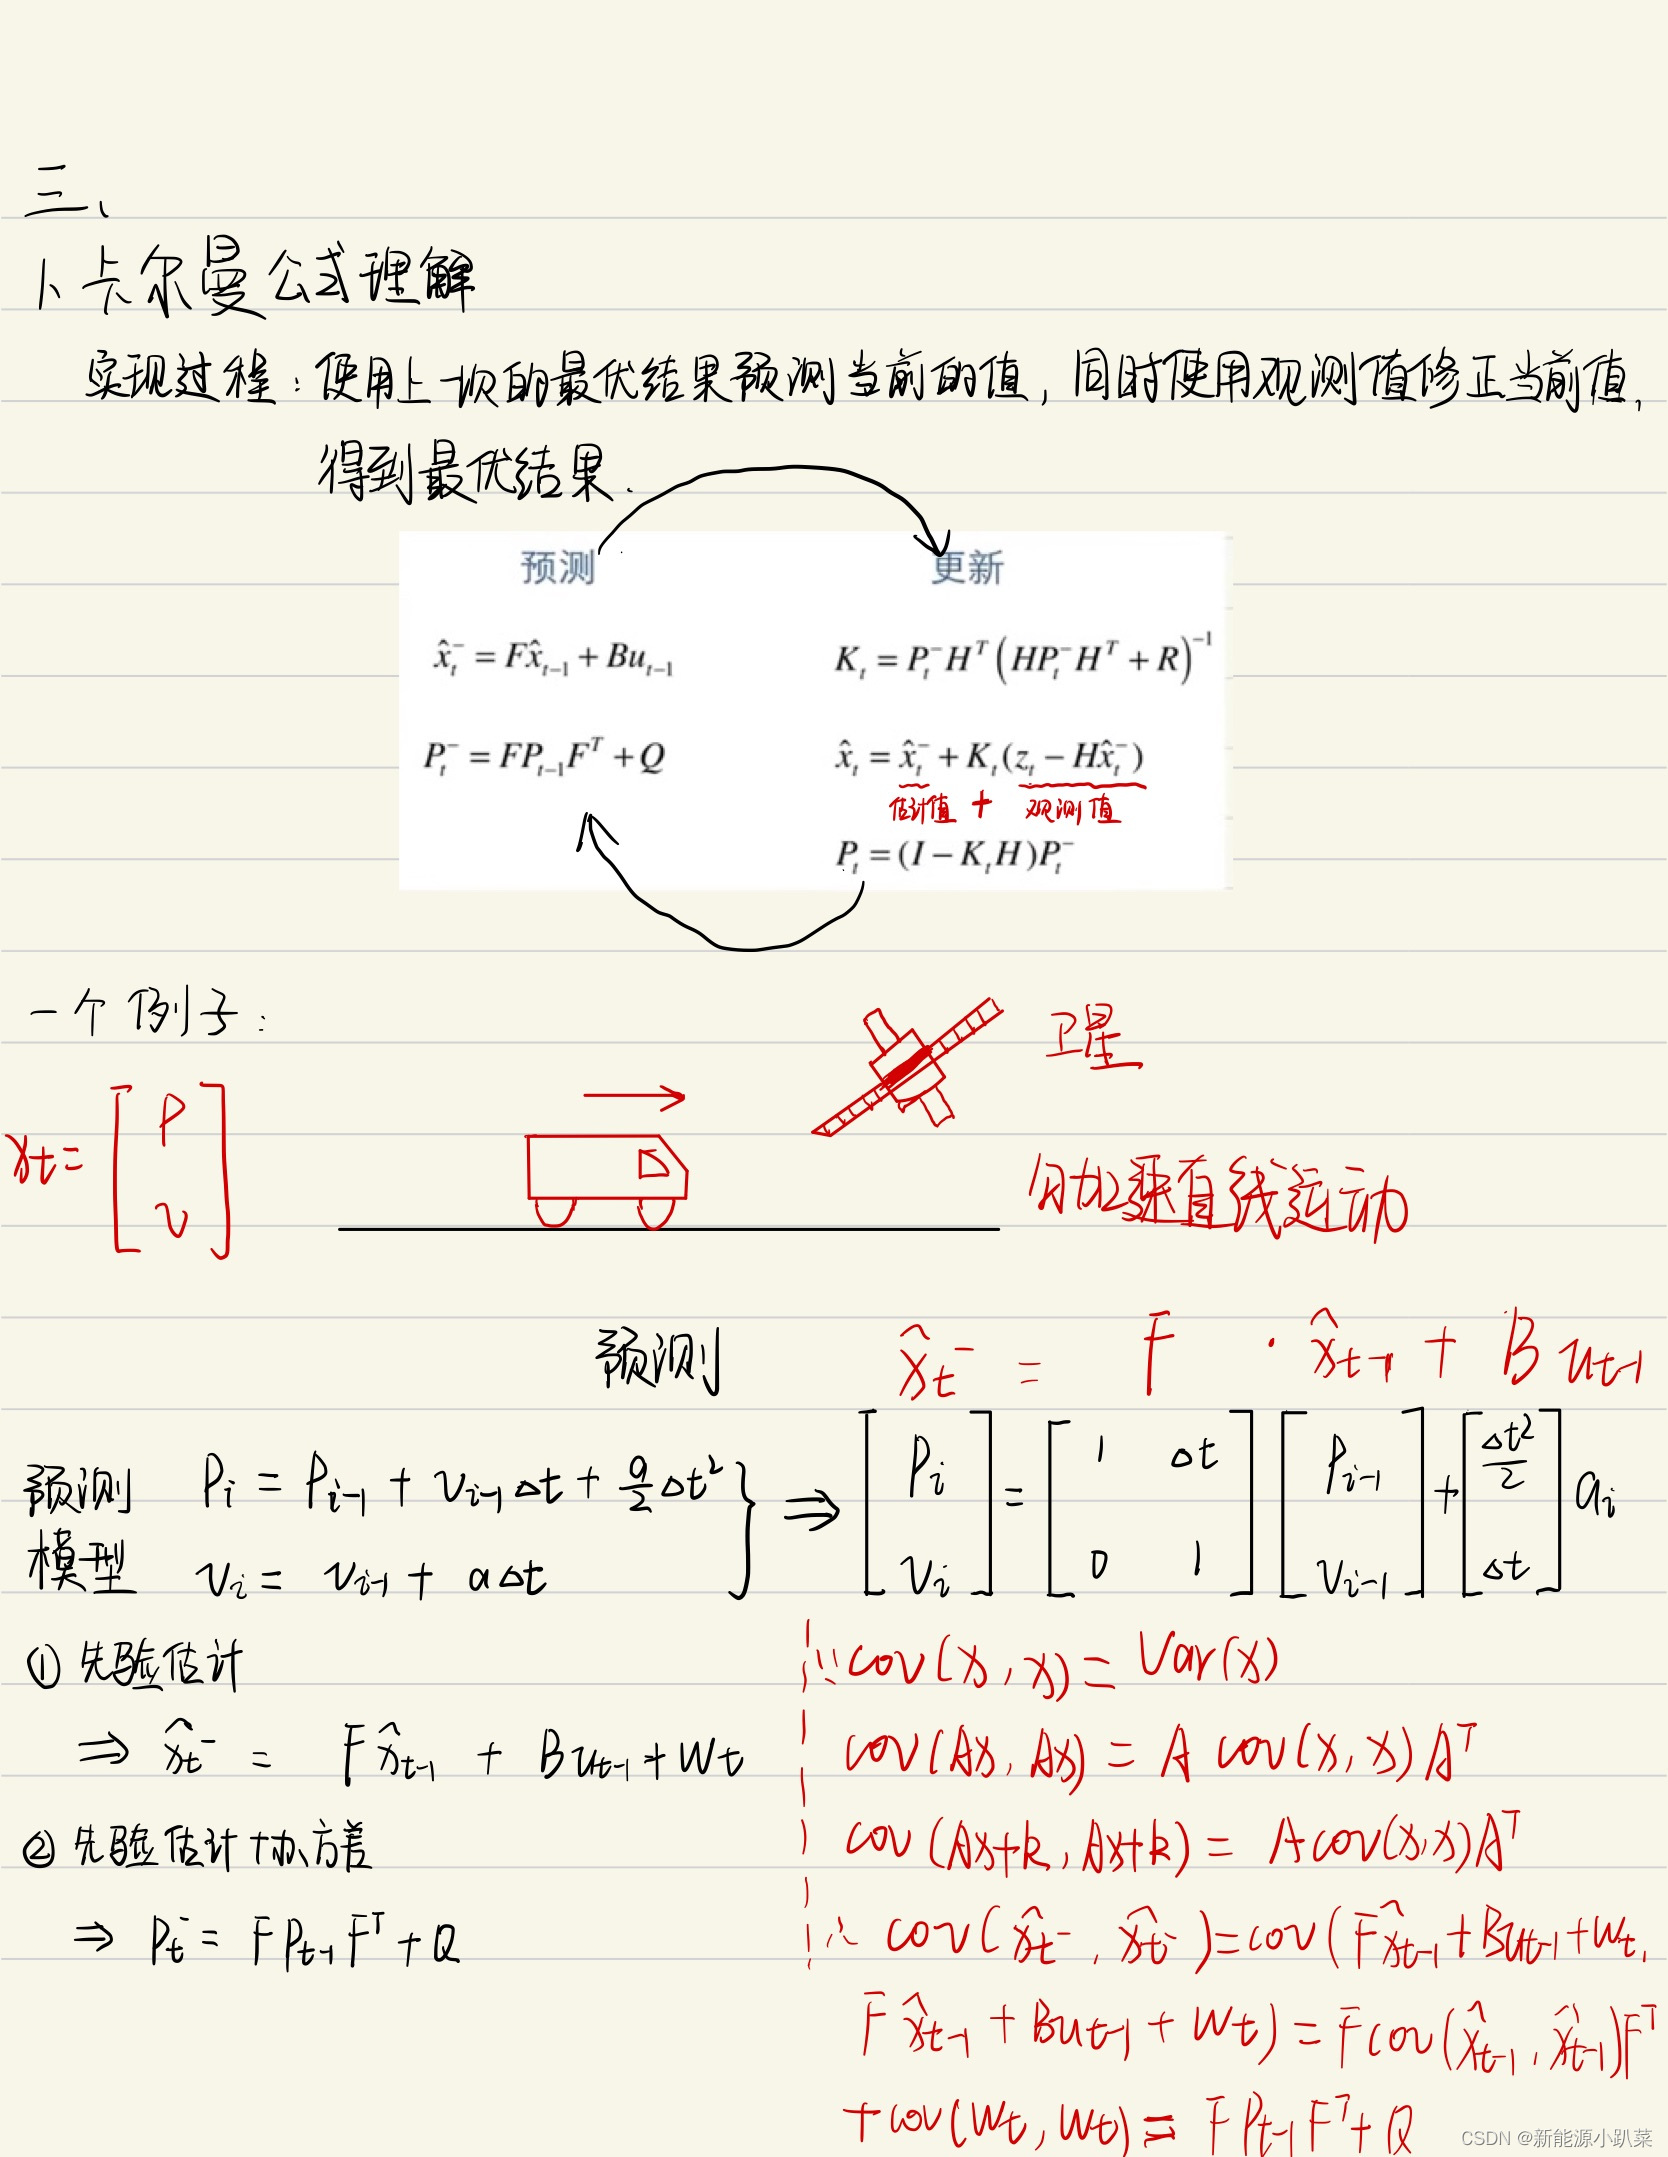 三、
1、卡尔曼公式理解
实现过程：使用上一次的最优结果预测当前的值，同时使用观测值修正当前值，
得到最优结果.
预测 更新
x̂ₜ⁻ = Fx̂ₜ₋₁ + Buₜ₋₁ Kₜ = Pₜ⁻Hᵀ(HPₜ⁻Hᵀ + R)⁻¹
Pₜ⁻ = FPₜ₋₁Fᵀ + Q x̂ₜ = x̂ₜ⁻ + Kₜ(zₜ − Hx̂ₜ⁻)
估计值 + 观测值
Pₜ = (I − KₜH)Pₜ⁻
一个例子：
卫星
xₜ = [P v]
匀加速直线运动
预测 x̂ₜ⁻ = F · x̂ₜ₋₁ + B uₜ₋₁
预测模型
Pᵢ = Pᵢ₋₁ + vᵢ₋₁Δt + a/2 Δt²
vᵢ = vᵢ₋₁ + aΔt
⇒ [Pᵢ; vᵢ] = [1 Δt; 0 1] [Pᵢ₋₁; vᵢ₋₁] + [Δt²/2; Δt] aᵢ
① 先验估计
⇒ x̂ₜ⁻ = Fx̂ₜ₋₁ + Buₜ₋₁ + wₜ
② 先验估计协方差
⇒ Pₜ⁻ = FPₜ₋₁Fᵀ + Q
∵ cov(x, x) = Var(x)
cov(Ax, Ax) = A cov(x, x)Aᵀ
cov(Ax+k, Ax+k) = Acov(x,x)Aᵀ
∴ cov(x̂ₜ⁻, x̂ₜ⁻) = cov(Fx̂ₜ₋₁ + Buₜ₋₁ + wₜ,
Fx̂ₜ₋₁ + Buₜ₋₁ + wₜ) = Fcov(x̂ₜ₋₁, x̂ₜ₋₁)Fᵀ
+ cov(wₜ, wₜ) = FPₜ₋₁Fᵀ + Q
CSDN @新能源小趴菜